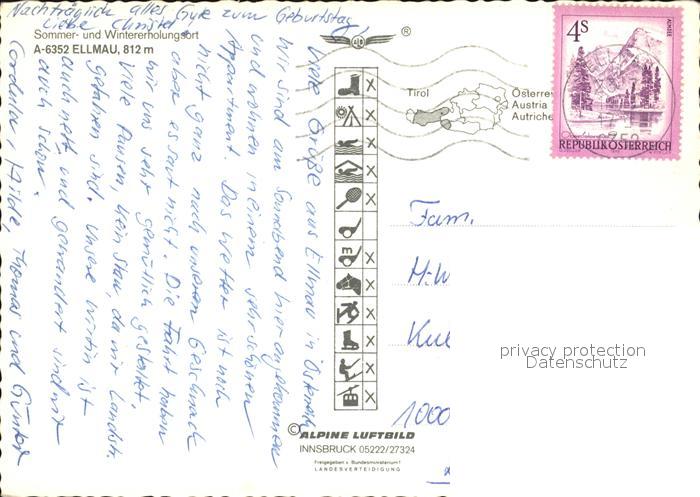 Nachträglich alles Gute zum Geburtstag,
liebe Christel.
Sommer- und Wintererholungsort
A-6352 ELLMAU, 812 m
Liebe Grüße aus Ellmau in Österreich
wir sind am Sonnabend hier angekommen
und wohnen in einem sehr schönen
Apartment. Das Wetter ist noch
nicht ganz nach unserem Geschmack
aber es saut nicht. Die Fahrt haben
wir uns sehr gemütlich gestaltet.
Viele Pausen, kein Stau, da wir Landstr.
gefahren sind. Unsere Wirtin ist
auch nett und gewandert sind wir
auch schon.
Hilde, Thomas und Günter
®
Tirol
Österre
Austria
Autriche
m
4S
ALMSEE
REPUBLIK ÖSTERREICH
Fam.
1000
privacy protection
Datenschutz
© ALPINE LUFTBILD
INNSBRUCK 05222/27324
Freigegeben v. Bundesministerium f.
LANDESVERTEIDIGUNG